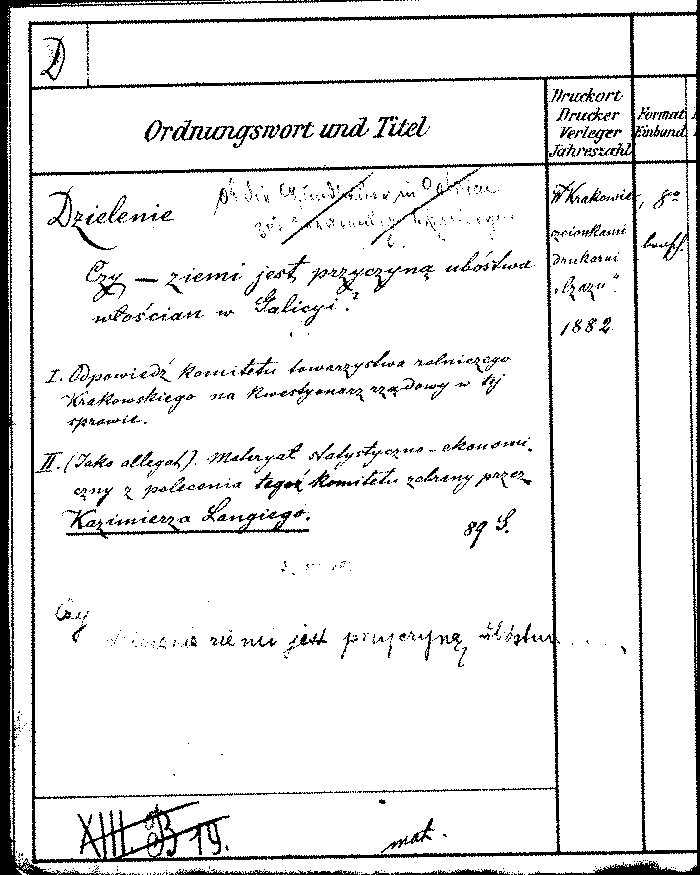 D
Ordnungswort und Titel
Druckort
Drucker
Verleger
Jahreszahl
Format
Einband
Dzielenie
Czy — ziemi jest przyczyną ubóstwa
włościan w Galicyi?
I. Odpowiedź komitetu towarzystwa rolniczego
Krakowskiego na kwestyonarz rządowy w tej
sprawie.
II. (Jako allegat). Materyał statystyczno-ekonomi-
czny z polecenia tegoż komitetu zebrany przez
Kazimierza Langiego.
89 S.
W Krakowie,
czcionkami
drukarni
„Czasu".
1882
8º
Czy
ziemi jest przyczyną ubóstwa . . . .
XIII. B 19.
mat.